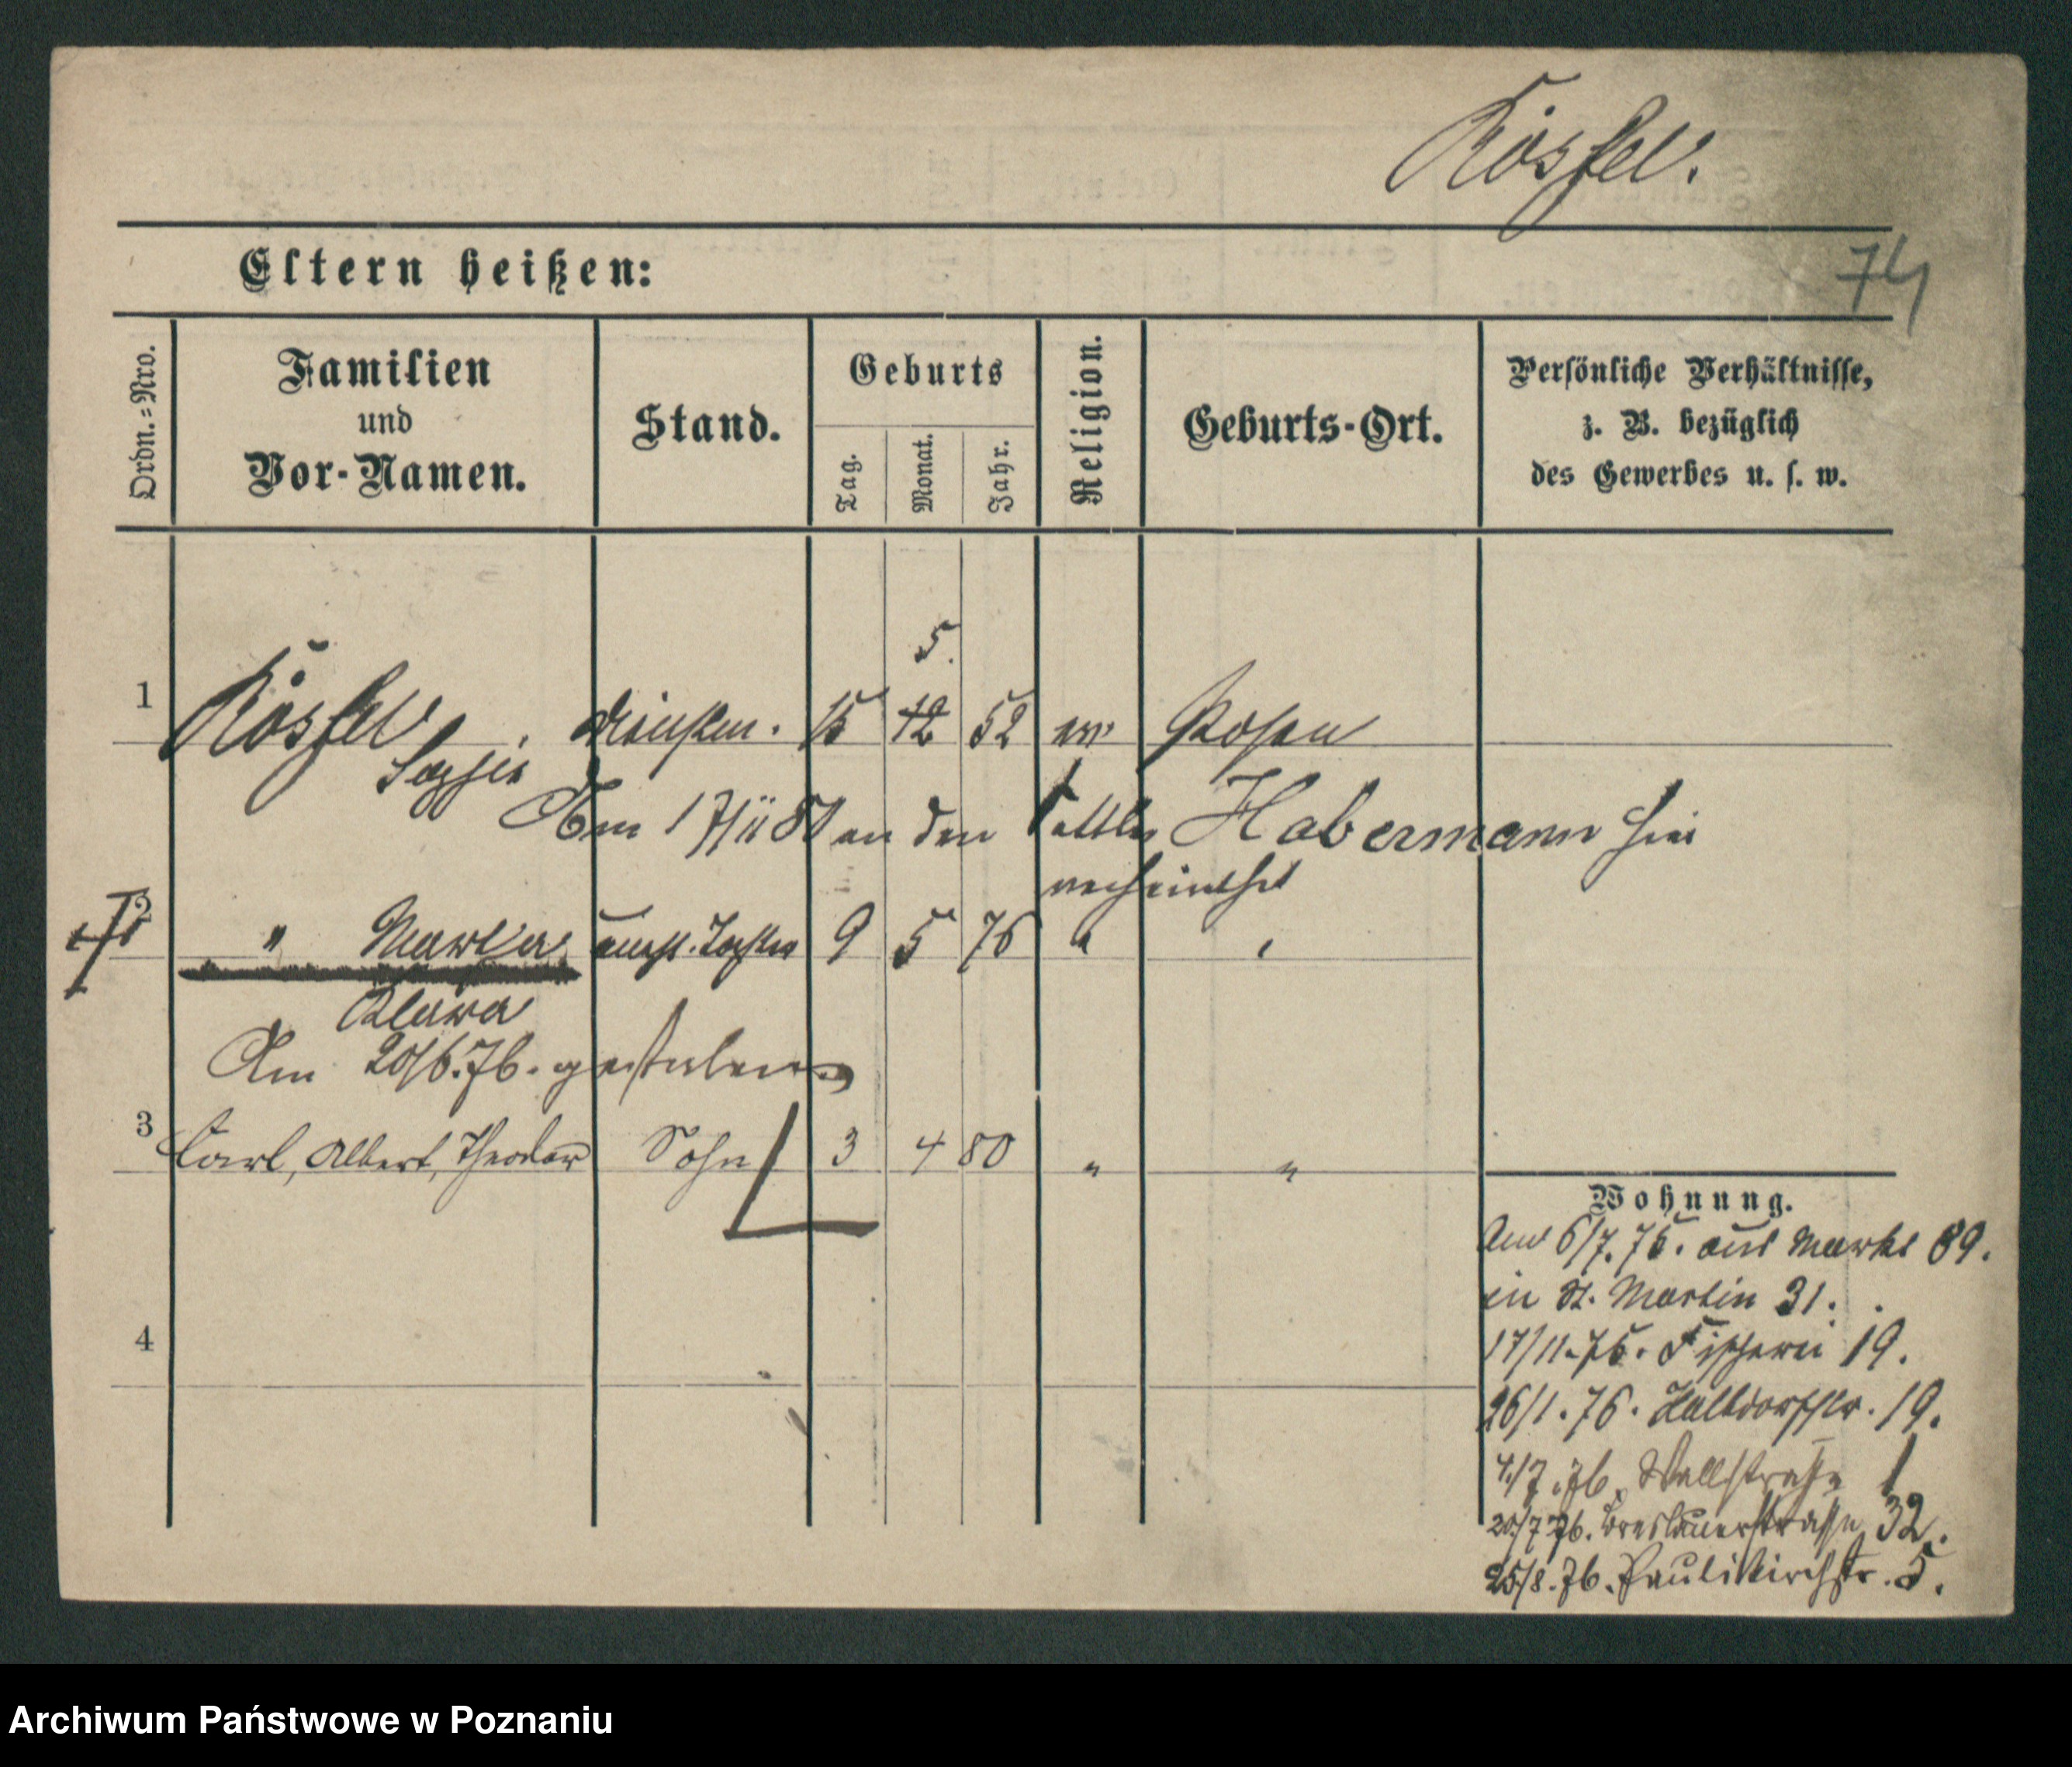 Rösfel.
74
Eltern heißen:
Ordn.=Nro.
Familien und Vor-Namen.
Stand.
Geburts
Tag.
Monat.
Jahr.
Religion.
Geburts-Ort.
Persönliche Verhältnisse, z. B. bezüglich des Gewerbes u. s. w.
5.
1 Rösfel, 15 12 52 ev Posen
Sophie
Am den Habermann hier
verheirathet
2 " Maria Tochter 9 5 76 "
Klara
Am 20/6.76. gestorben
3 Carl, Albert, Theodor Sohn 3 4 80 " "
4
Wohnung.
Am 6/7.75. aus Markt 89.
in St. Martin 31.
17/11.75. Fischerei 19.
26/1.76. Halbdorfstr. 19.
4/7.76. Wallstraße 1
20/7 76. Breslauerstraße 32.
25/8.76. Paulikirchstr. 5.
Archiwum Państwowe w Poznaniu